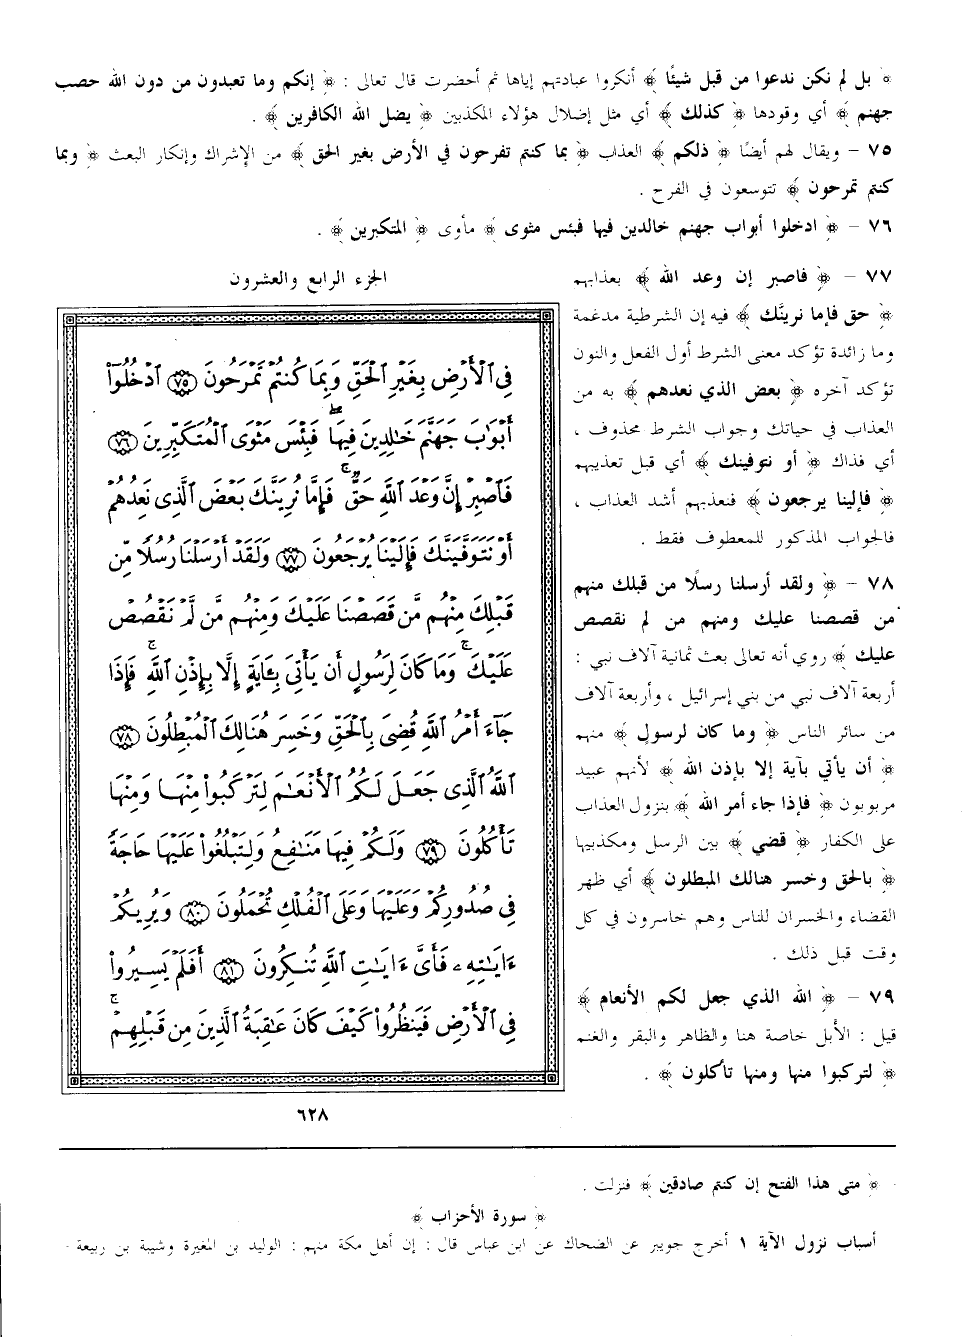 ﴿ بل لم نكن ندعوا من قبل شيئًا ﴾ أنكروا عبادتهم إياها ثم أحضرت قال تعالى : ﴿ إنكم وما تعبدون من دون الله حصب
جهنم ﴾ أي وقودها ﴿ كذلك ﴾ أي مثل إضلال هؤلاء المكذبين ﴿ يضل الله الكافرين ﴾ .
٧٥ – ويقال لهم أيضًا ﴿ ذلكم ﴾ العذاب ﴿ بما كنتم تفرحون في الأرض بغير الحق ﴾ من الإشراك وإنكار البعث ﴿ وبما
كنتم تمرحون ﴾ تتوسعون في الفرح .
٧٦ – ﴿ ادخلوا أبواب جهنم خالدين فيها فبئس مثوى ﴾ مأوى ﴿ المتكبرين ﴾ .
٧٧ – ﴿ فاصبر إن وعد الله ﴾ بعذابهم
﴿ حق فإما نرينَّك ﴾ فيه إن الشرطية مدغمة
وما زائدة تؤكد معنى الشرط أول الفعل والنون
تؤكد آخره ﴿ بعض الذي نعدهم ﴾ به من
العذاب في حياتك وجواب الشرط محذوف ،
أي فذاك ﴿ أو نتوفينك ﴾ أي قبل تعذيبهم
﴿ فإلينا يرجعون ﴾ فنعذبهم أشد العذاب ،
فالجواب المذكور للمعطوف فقط .
٧٨ – ﴿ ولقد أرسلنا رسلًا من قبلك منهم
من قصصنا عليك ومنهم من لم نقصص
عليك ﴾ روي أنه تعالى بعث ثمانية آلاف نبي :
أربعة آلاف نبي من بني إسرائيل ، وأربعة آلاف
من سائر الناس ﴿ وما كان لرسول ﴾ منهم
﴿ أن يأتي بآية إلا بإذن الله ﴾ لأنهم عبيد
مربوبون ﴿ فإذا جاء أمر الله ﴾ بنزول العذاب
على الكفار ﴿ قضي ﴾ بين الرسل ومكذبيها
﴿ بالحق وخسر هنالك المبطلون ﴾ أي ظهر
القضاء والخسران للناس وهم خاسرون في كل
وقت قبل ذلك .
٧٩ – ﴿ الله الذي جعل لكم الأنعام ﴾
قيل : الأبل خاصة هنا والظاهر والبقر والغنم
﴿ لتركبوا منها ومنها تأكلون ﴾ .
الجزء الرابع والعشرون
فِى ٱلْأَرْضِ بِغَيْرِ ٱلْحَقِّ وَبِمَا كُنتُمْ تَمْرَحُونَ ٧٥ ٱدْخُلُوٓا۟
أَبْوَٰبَ جَهَنَّمَ خَٰلِدِينَ فِيهَا ۖ فَبِئْسَ مَثْوَى ٱلْمُتَكَبِّرِينَ ٧٦
فَٱصْبِرْ إِنَّ وَعْدَ ٱللَّهِ حَقٌّ ۚ فَإِمَّا نُرِيَنَّكَ بَعْضَ ٱلَّذِى نَعِدُهُمْ
أَوْ نَتَوَفَّيَنَّكَ فَإِلَيْنَا يُرْجَعُونَ ٧٧ وَلَقَدْ أَرْسَلْنَا رُسُلًا مِّن
قَبْلِكَ مِنْهُم مَّن قَصَصْنَا عَلَيْكَ وَمِنْهُم مَّن لَّمْ نَقْصُصْ
عَلَيْكَ ۗ وَمَا كَانَ لِرَسُولٍ أَن يَأْتِىَ بِـَٔايَةٍ إِلَّا بِإِذْنِ ٱللَّهِ ۚ فَإِذَا
جَآءَ أَمْرُ ٱللَّهِ قُضِىَ بِٱلْحَقِّ وَخَسِرَ هُنَالِكَ ٱلْمُبْطِلُونَ ٧٨
ٱللَّهُ ٱلَّذِى جَعَلَ لَكُمُ ٱلْأَنْعَٰمَ لِتَرْكَبُوا۟ مِنْهَا وَمِنْهَا
تَأْكُلُونَ ٧٩ وَلَكُمْ فِيهَا مَنَٰفِعُ وَلِتَبْلُغُوا۟ عَلَيْهَا حَاجَةً
فِى صُدُورِكُمْ وَعَلَيْهَا وَعَلَى ٱلْفُلْكِ تُحْمَلُونَ ٨٠ وَيُرِيكُمْ
ءَايَٰتِهِۦ فَأَىَّ ءَايَٰتِ ٱللَّهِ تُنكِرُونَ ٨١ أَفَلَمْ يَسِيرُوا۟
فِى ٱلْأَرْضِ فَيَنظُرُوا۟ كَيْفَ كَانَ عَٰقِبَةُ ٱلَّذِينَ مِن قَبْلِهِمْ ۚ
٦٢٨
﴿ متى هذا الفتح إن كنتم صادقين ﴾ فنزلت .
﴿ سورة الأحزاب ﴾
أسباب نزول الآية ١ أخرج جويبر عن الضحاك عن ابن عباس قال : إن أهل مكة منهم : الوليد بن المغيرة وشيبة بن ربيعة